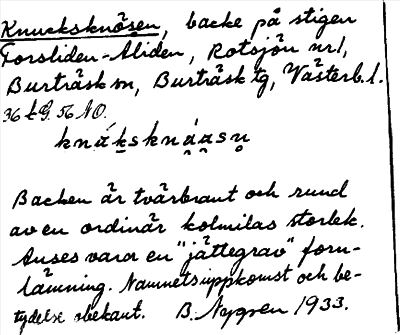 Knucksknösen, backe på stigen
Forsliden-Åliden, Rotsjön nr 1,
Burträsk sn, Burträsk tg, Västerb. l.
36 k G. 56 NO.
knáksknåasn
Backen är tvärbrant och rund
av en ordinär kolmilas storlek.
Anses vara en "jättegrav" forn-
lämning. Namnets uppkomst och be-
tydelse obekant. B. Nygren 1933.